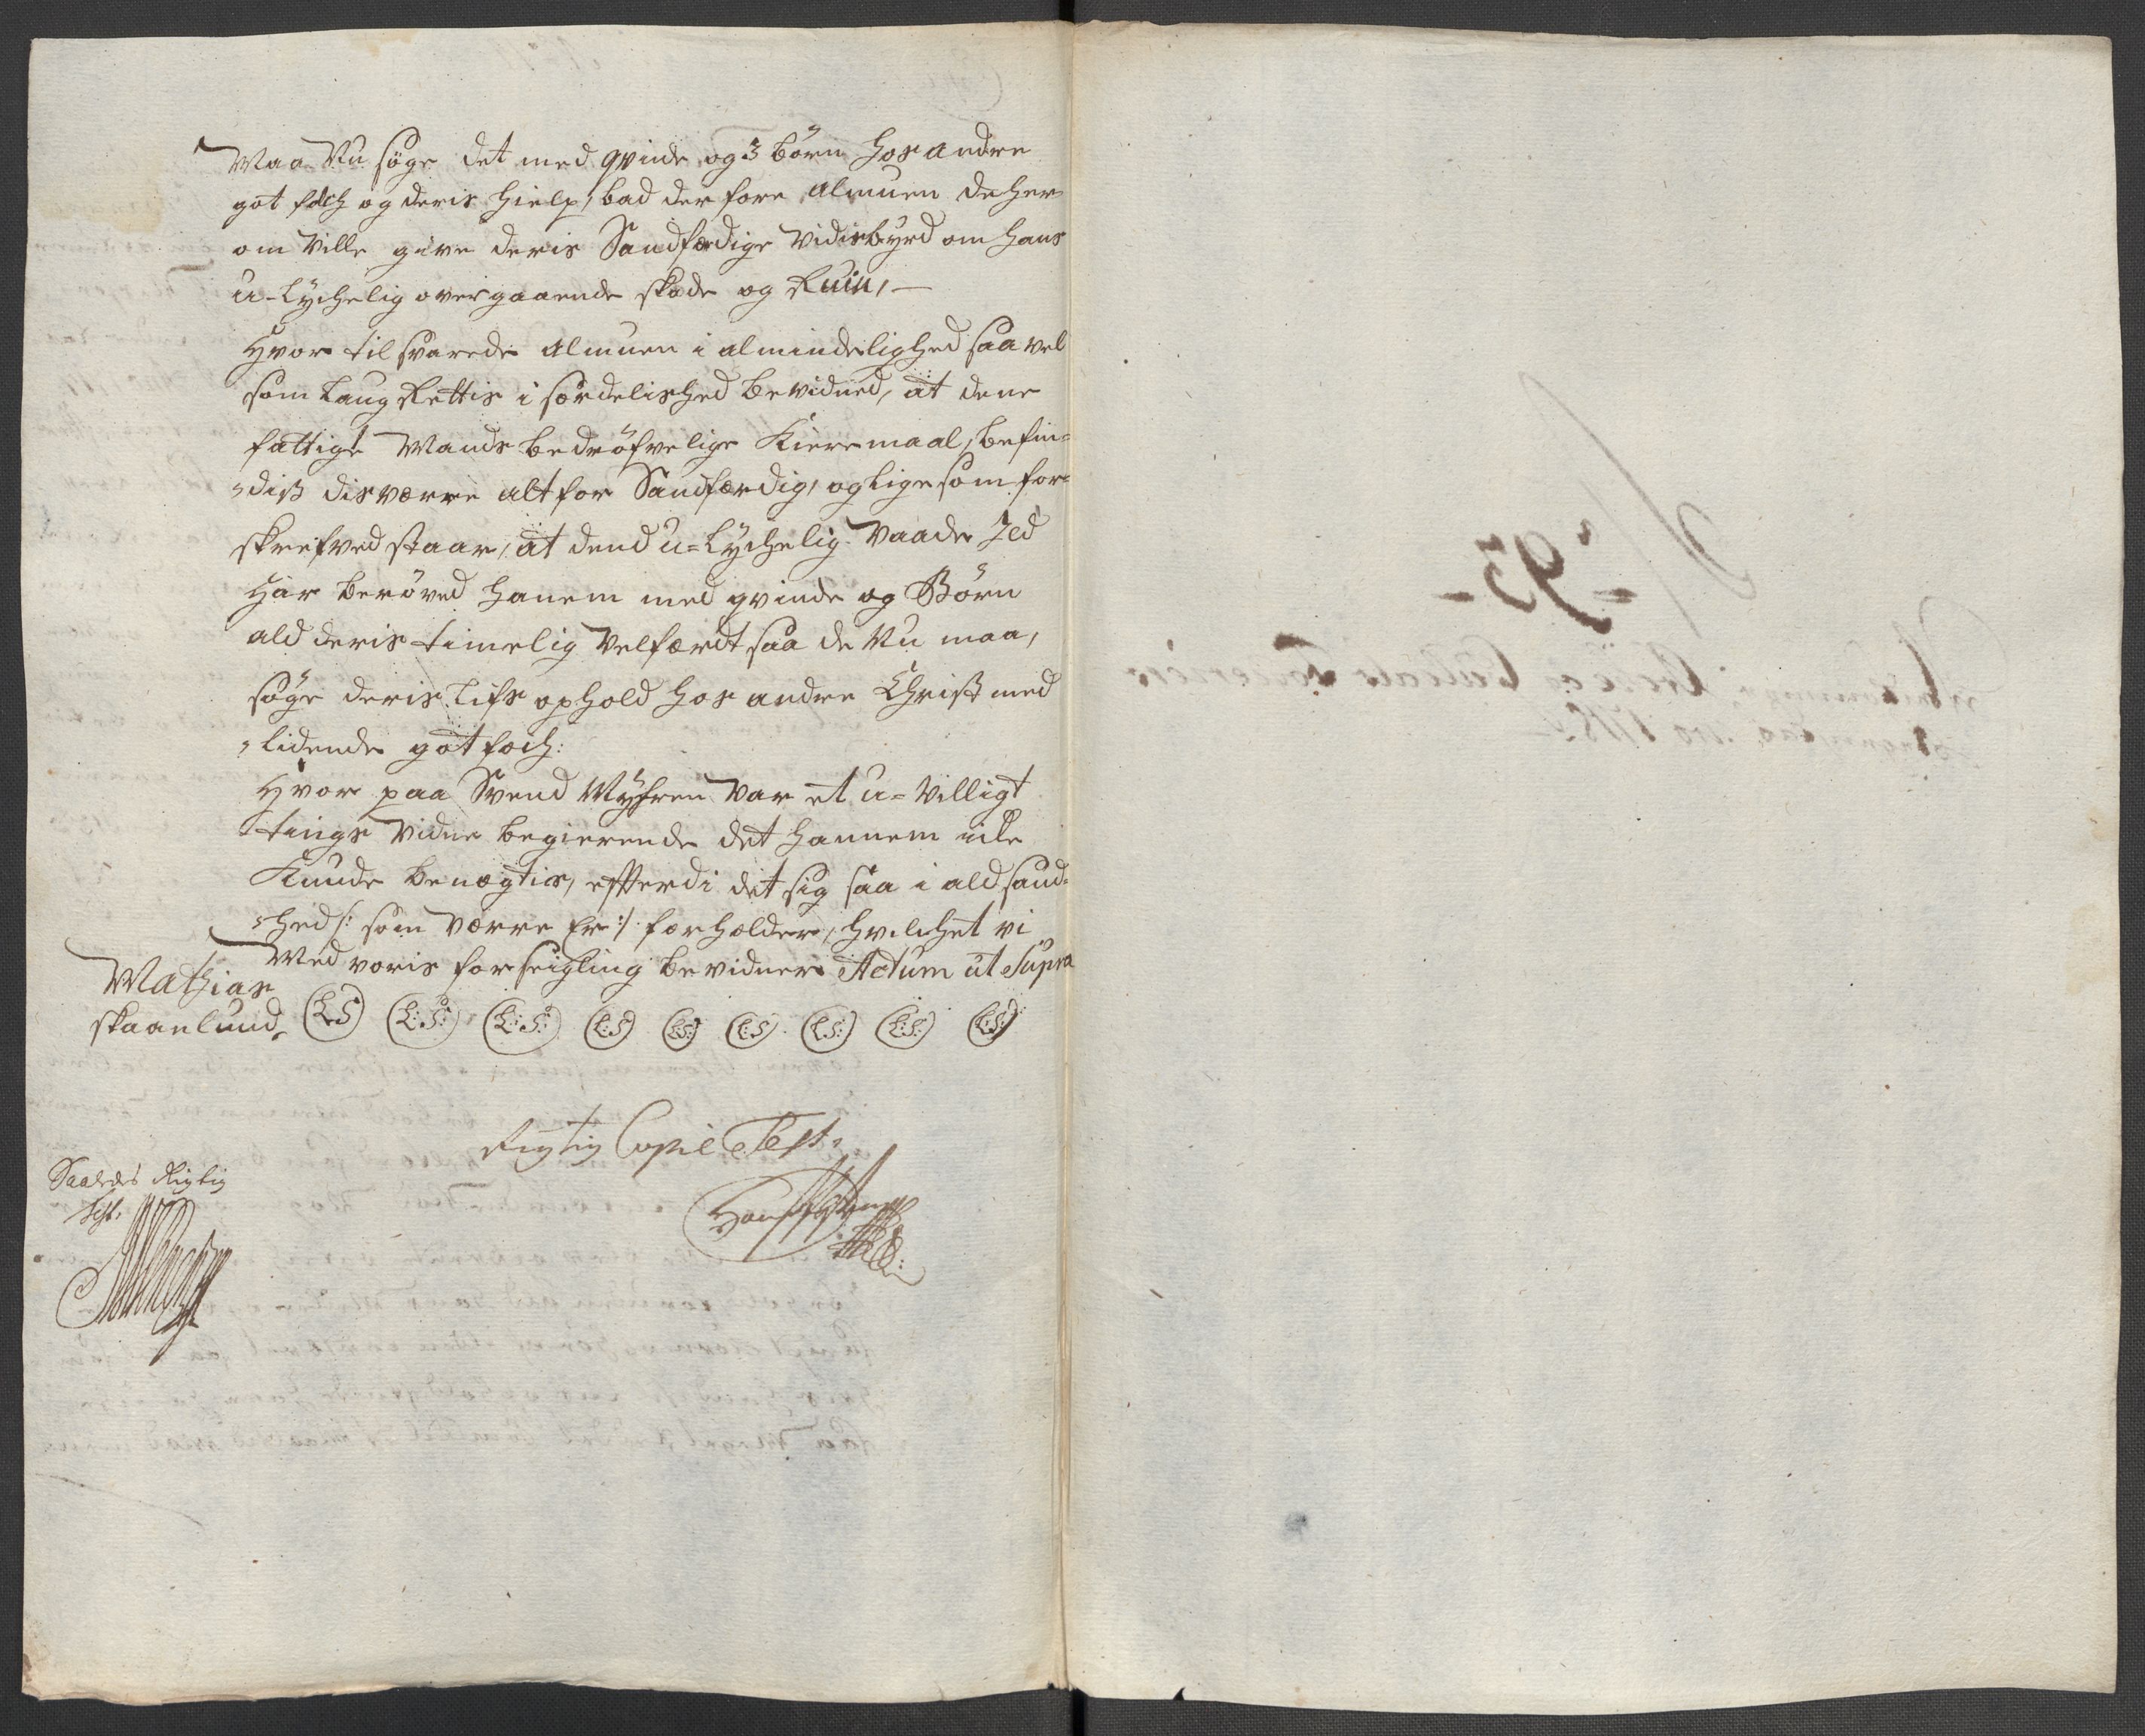 Maa Nu søge det med qvinde og 3 börn hos andre
got folch og deris hielp, bad der fore Almuen de her-
om Ville give deris Sandfærdige Vidisbyrd om hans
u-Lychelig overgaaende skade og Ruin, —
Hvor til svarede Almuen i almindelighed saa vel
som Laug Rettis i særdelished bevidned, at dene
fattige Mands bedröfvelige Kieremaal, befin-
-diß disværre alt for Sandfærdig, og ligesom for-
skrefved staar, at dend u=Lychelig Vaade Jld
Har berøved hanem med qvinde og Börn
ald deris timelig Velfærdt saa de Nu maa,
søge deris Lifs ophold hos andre Christ med
-lidende got folch:
Hvor paa Svend Myhren Var et u=Villigt
tings Vidne begierende det hannem icke
Kunde benægtis, efterdi det sig saa i ald sand-
-hed /: som Værre Er :/ forholder, hvilchet vi
Med voris forseigling bevidner Actum ut Supra
Mathias
skaanlund, (L:S) (L:S:) (L:S:) (L:S) (L:S:) (L:S) (L:S:) (L:S:) (L:S:)
Rigtig Copie Test.
Saaledes Rigtig
Test.
=95-